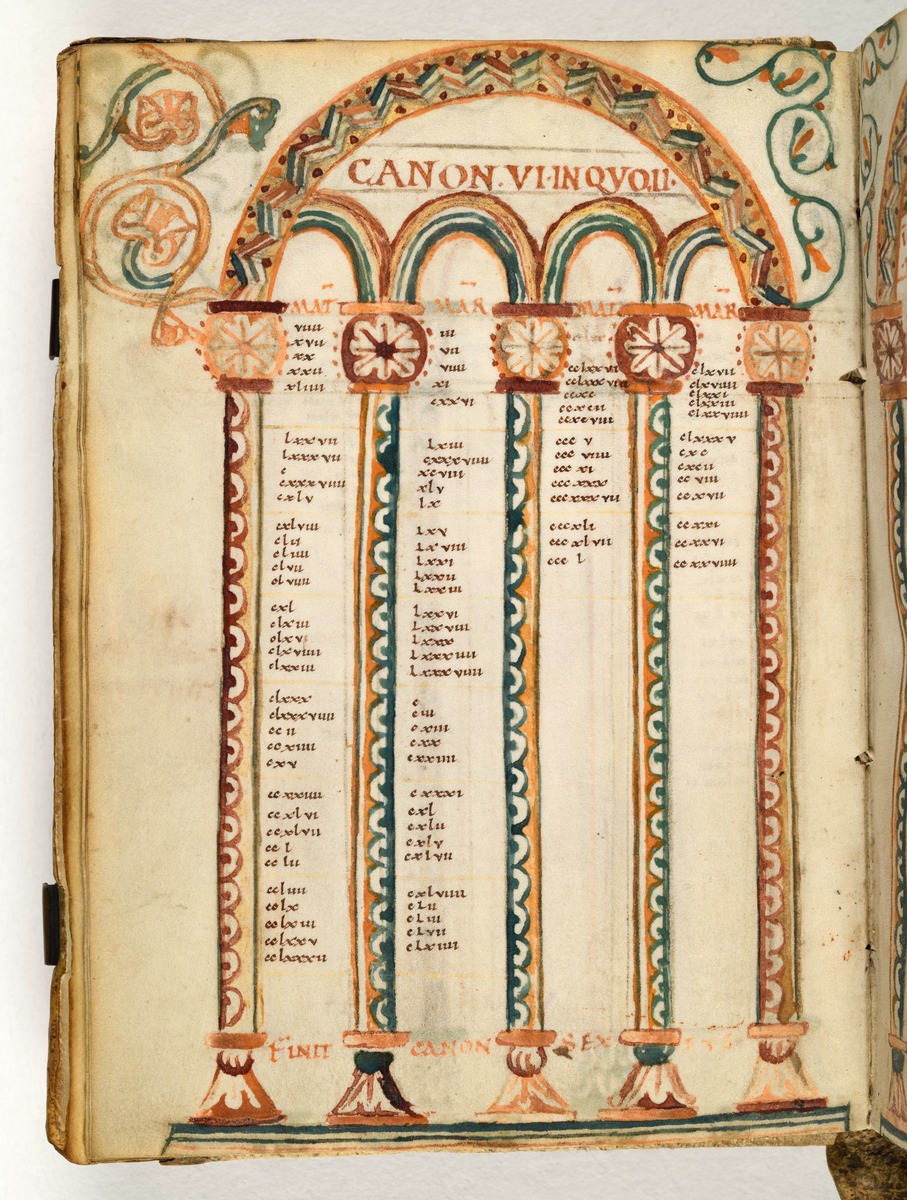 CANON·VI·IN QVO·II·
MAT
viiii
xvii
xx
xxii
xliiii
lxxvii
lxxxvii
c
cxxxviiii
cxlv
cxlviii
clii
cliiii
clvii
clviiii
cxl
clxiii
clxv
clxviiii
clxxiii
clxxx
clxxxviiii
ccii
ccxiiii
cxv
ccxxiiii
ccxlvi
ccxlvii
ccl
cclii
ccliiii
cclx
cclxiii
cclxxv
cclxxxii
MAR
iii
vii
viiii
xi
cxxvi
lxiii
cxxxviiii
xcviii
xlv
lx
lxv
lxviii
lxxi
lxxii
lxxiii
lxxvi
lxxviii
lxxx
lxxxiiii
lxxxviiii
c
ciii
cxiii
cxx
cxxiiii
cxxxi
cxl
cxlii
cxlv
cxlvii
cxlviiii
clii
cliii
clvii
clxiiii
MAT
cclxxxvii
ccxc
ccxcii
ccxcviii
cccv
cccviiii
cccxi
cccxxx
cccxxxvii
cccxli
cccxlvii
cccl
MAR
clxvii
clxviiii
clxxi
clxxiii
clxxviiii
clxxxv
cxc
cxcii
ccviii
ccxvii
ccxxi
ccxxvi
ccxxviiii
FINIT CANON SEX